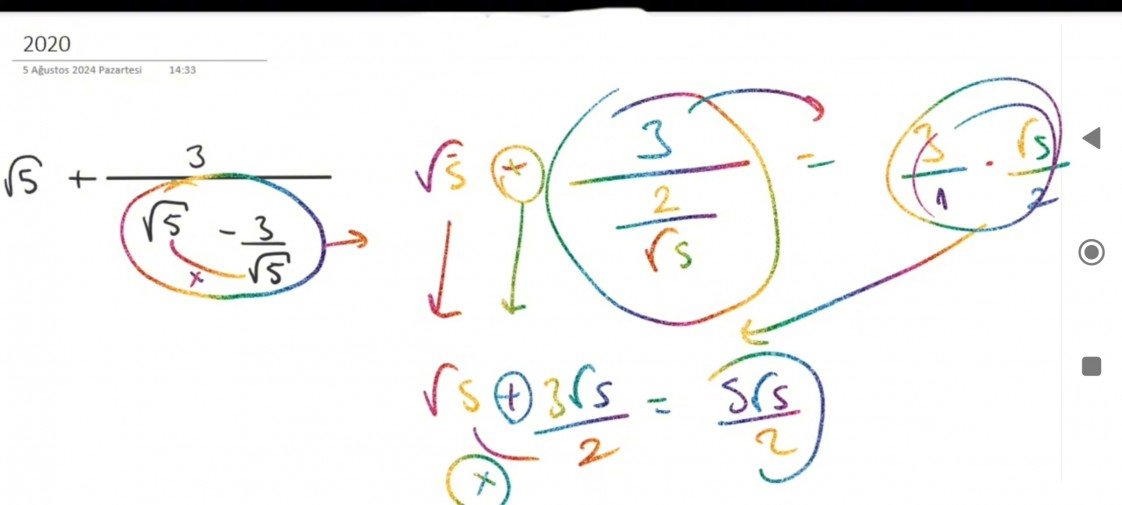 2020
5 Ağustos 2024 Pazartesi 14:33
√5 + 3/(√5 - 3/√5)
×
√5 + 3/(2/√5) = 3/1 · √5/2
√5 + 3√5/2 = 5√5/2
+